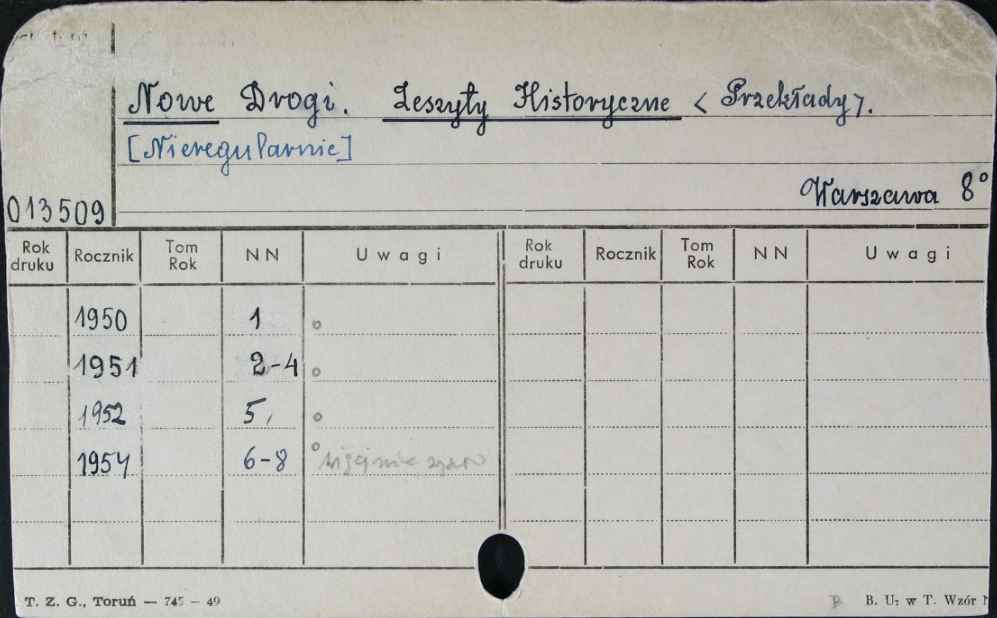 Nowe Drogi. Zeszyty Historyczne < Przekłady >.
[Nieregularnie]
Warszawa 8°
013509
Rok druku Rocznik Tom Rok NN Uwagi Rok druku Rocznik Tom Rok NN Uwagi
1950 1
1951 2-4
1952 5,
1954 6-8
T. Z. G., Toruń — 745 — 49 B. U. w T. Wzór